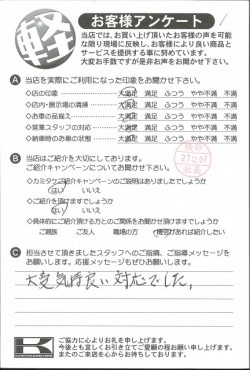 軽
お客様アンケート
当店では、お買い上げ頂いたお客様の声を可能
な限り現場に反映し、お客様により良い商品と
サービスを提供する事に努めています。
大変お手数ですが是非お声をお聞かせ下さい。
A 当店を実際にご利用になった印象をお聞かせ下さい。
◇店の印象 大満足 満足 ふつう やや不満 不満
◇店内・展示場の清掃 大満足 満足 ふつう やや不満 不満
◇お車の品揃え 大満足 満足 ふつう やや不満 不満
◇営業スタッフの対応 大満足 満足 ふつう やや不満
◇お車の満足度 大満足 満足 ふつう やや不満
B 当店はご紹介を大切にしております。
ご紹介キャンペーンについてお聞かせ下さい。
◇カミタケご紹介キャンペーンのご説明はありましたでしょうか
はい いいえ
◇ご紹介を頂けますでしょうか
はい いいえ
◇具体的にご紹介頂ける方とのご関係をお聞かせ頂けますでしょうか
ご親族 ご友人 職場の方 機会があれば紹介したい
C 担当させて頂きましたスタッフへのご指摘、ご指導メッセージを
お願いします。応援メッセージもぜひお願いします。
大変気持良い対応でした。
K
ご協力に心よりお礼を申し上げます。
今後とも宜しくお引き立てご愛顧の程お願い申し上げます。
またのご来店を心からお待ちしております。